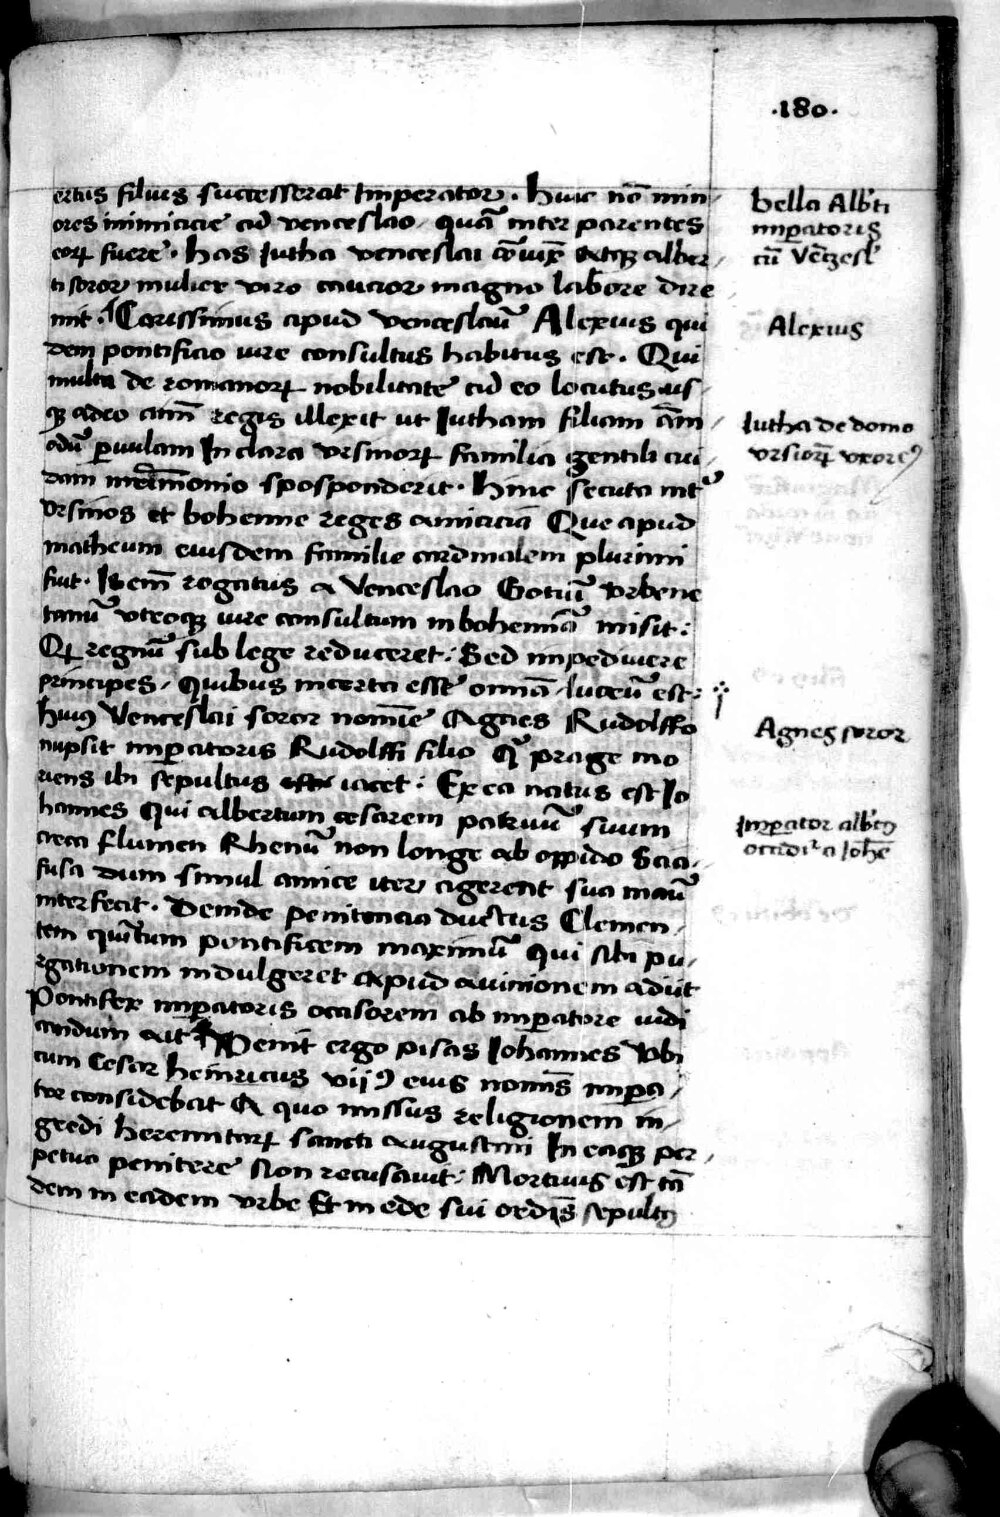 ·180·
ertus filius successerat Imperator. huic nō min-
ores inimicicie cū venceslao, quā inter parentes
eoꝝ fuere. has Jutha venceslai cōiux atqꝫ alber-
ti soror mulier viro caucior magno labore dire
mit. Carissimus apud venceslaū Alexius qui
dem pontificio iure consultus habitus est. Qui
multa de romanoꝝ nobilitate cū eo locutus, us-
qꝫ adeo aīm regis illexit ut Jutham filiam
ꝑuulam In clara vrsinoꝝ familia gentili cui-
dam spospōderit. hinc secuta int
vrsinos et bohemie reges amicicia Que apud
matheum eiusdem familie cardinalem plurimi
fiut. rogatus a venceslao Gotiū vrbeue
tanū vtroqꝫ iure consultum in bohemiā misit:
regnū sub lege reduceret: Sed impediuere
principes, Quibus incerta esse omnia lucrū est:
huiꝰ Venceslai soror nomīe Agnes Rudolffo
nupsit imꝑatoris Rudolffi filio prage mo
riens ibi sepultus iacet: Ex ea natus est Jo
hannes Qui albertum cesarem patruū suum
circa flumen Rhenū non longe ab oppido Sca-
fusa dum simul amice iter agerent sua manū
interfecit. Deinde penitencia ductus Clemen-
tem quintum pontificem maximū qui sibi pu-
rgationem indulgeret apud auinionem adiit
Pontifex imꝑatoris occisorem ab imꝑatore iudi
candum ait Venit ergo pisas Johannes Vbi
tum Cesar heinricus viiꝰ eius nomīs imꝑa-
tor considebat A quo iussus religionem in-
gredi heremitaꝝ sancti augustini In eaqꝫ per-
petuo penitere Non recusauit: Mortuus est tā
dem in eadem vrbe Et in ede sui ordīs sepultꝰ
bella Alb̄ti
imꝑatoris
cū Vēczesl
Alexius
Jutha de domo
vrsioꝝ vxore
Agnes soror
Imꝑator alb̄tꝰ
occidit a Johē